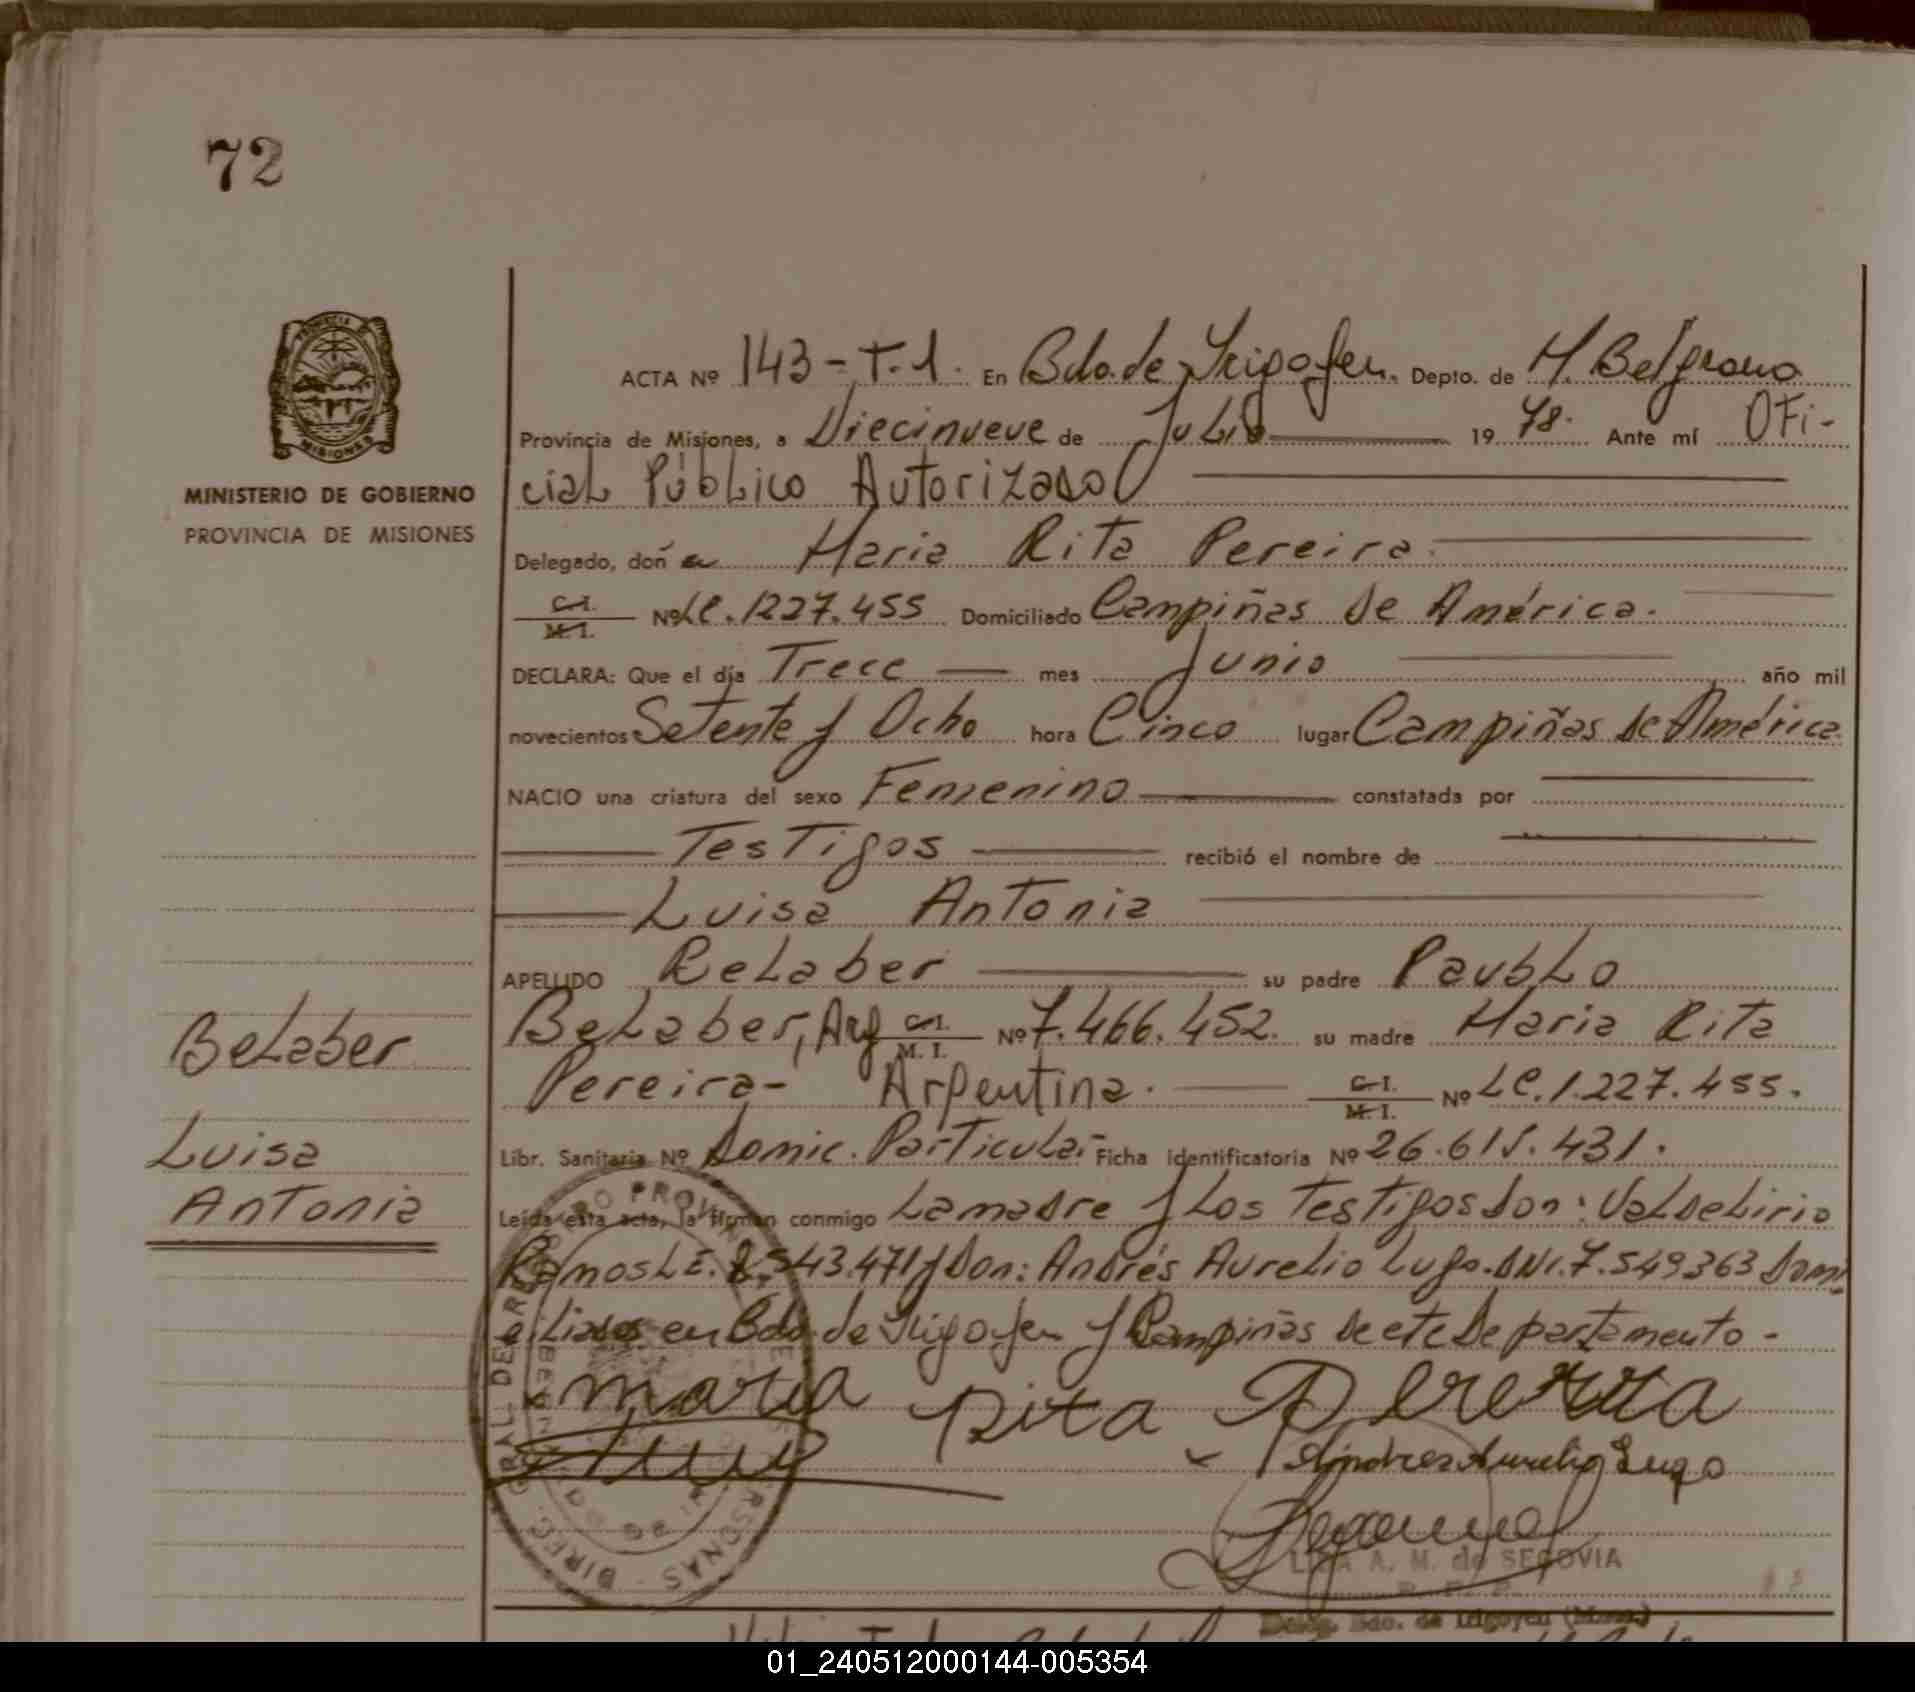 72
PROVINCIA DE
MISIONES
MINISTERIO DE GOBIERNO
PROVINCIA DE MISIONES
ACTA Nº 143-T.1. En Bdo.de Irigoyen. Depto. de M. Belgrano
Provincia de Misiones, a Diecinueve de Julio 19 78. Ante mí OFi-
cial Público Autorizado
Delegado, doña Maria Rita Pereira.
C.I.
M.I. Nº LC.1227.455 Domiciliado Campiñas de América.
DECLARA: Que el día Trece mes Junio año mil
novecientos Setenta y Ocho hora Cinco lugar Campiñas de América
NACIO una criatura del sexo Femenino constatada por
Testigos recibió el nombre de
Luisa Antonia
APELLIDO BeLaber su padre PaubLo
BeLaber, Arg C.I. M.I. Nº 7.466.452. su madre Maria Rita
Pereira- Argentina. C.I. M.I. Nº LC.1.227.455.
Libr. Sanitaria Nº Domic. Particular Ficha identificatoria Nº 26.615.431.
Leída esta acta, la firman conmigo La madre y Los Testigos Don: VaLdeLirio
Ramos LE. 8.543.471 y Don: Andrés Aurelio Lugo. DNI.7.549363 Domi
ciliados en Bdo. de Irigoyen y Campiñas de ete Departamento-
maria Rita Pereira
Andres Aurelio Lugo
A. M. de SEGOVIA
Deleg. Bdo. de Irigoyen (Mnes.)
BeLaber
Luisa
Antonia
01_240512000144-005354